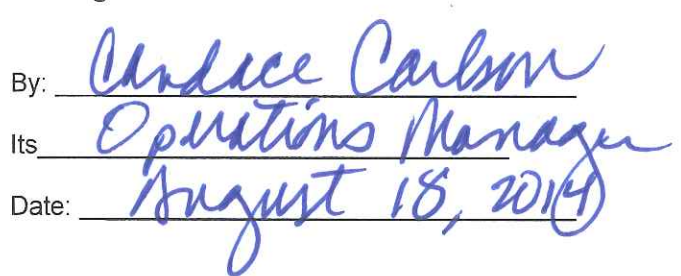 By: Candace Carlson
Its Operations Manager
Date: August 18, 2014